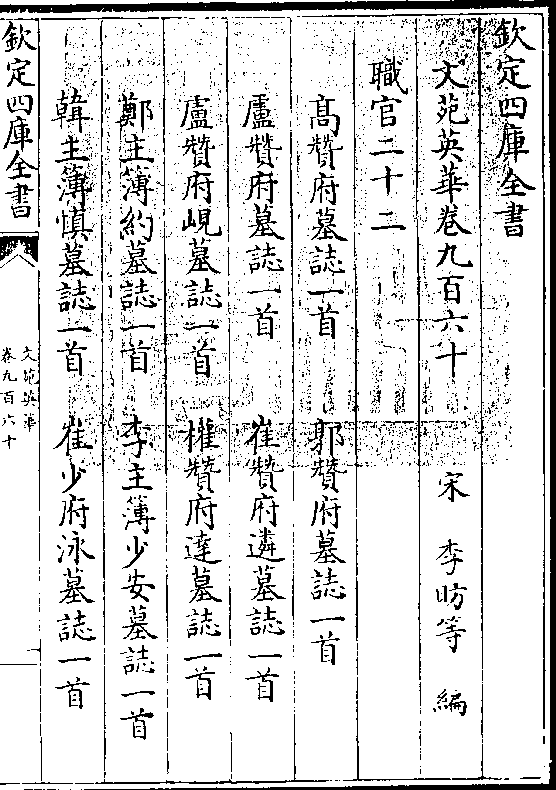 欽定四庫全書
文苑英華卷九百六十
宋 李昉等 編
職官二十二
高贊府墓誌一首 郭贊府墓誌一首
盧贊府墓誌一首 崔贊府遴墓誌一首
盧贊府峴墓誌一首 權贊府達墓誌一首
鄭主簿約墓誌一首 李主簿少安墓誌一首
韓主簿慎墓誌一首 崔少府泳墓誌一首
欽定四庫全書
文苑英華
卷九百六十
一